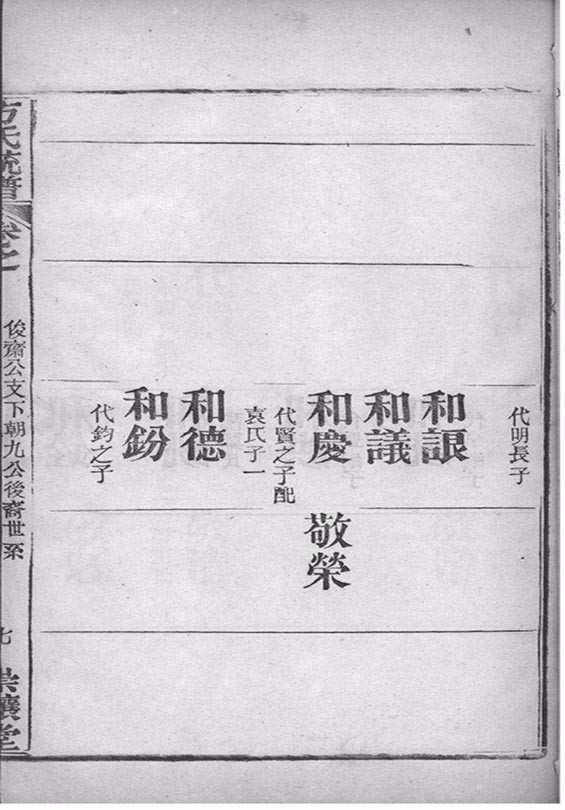 代明長子
和詪
和議
和慶
敬榮
代賢之子配
袁氏子一
和德
和鈖
代鈞之子
方氏統譜
卷之
俊齋公支下朝九公後裔世系
七
讓堂